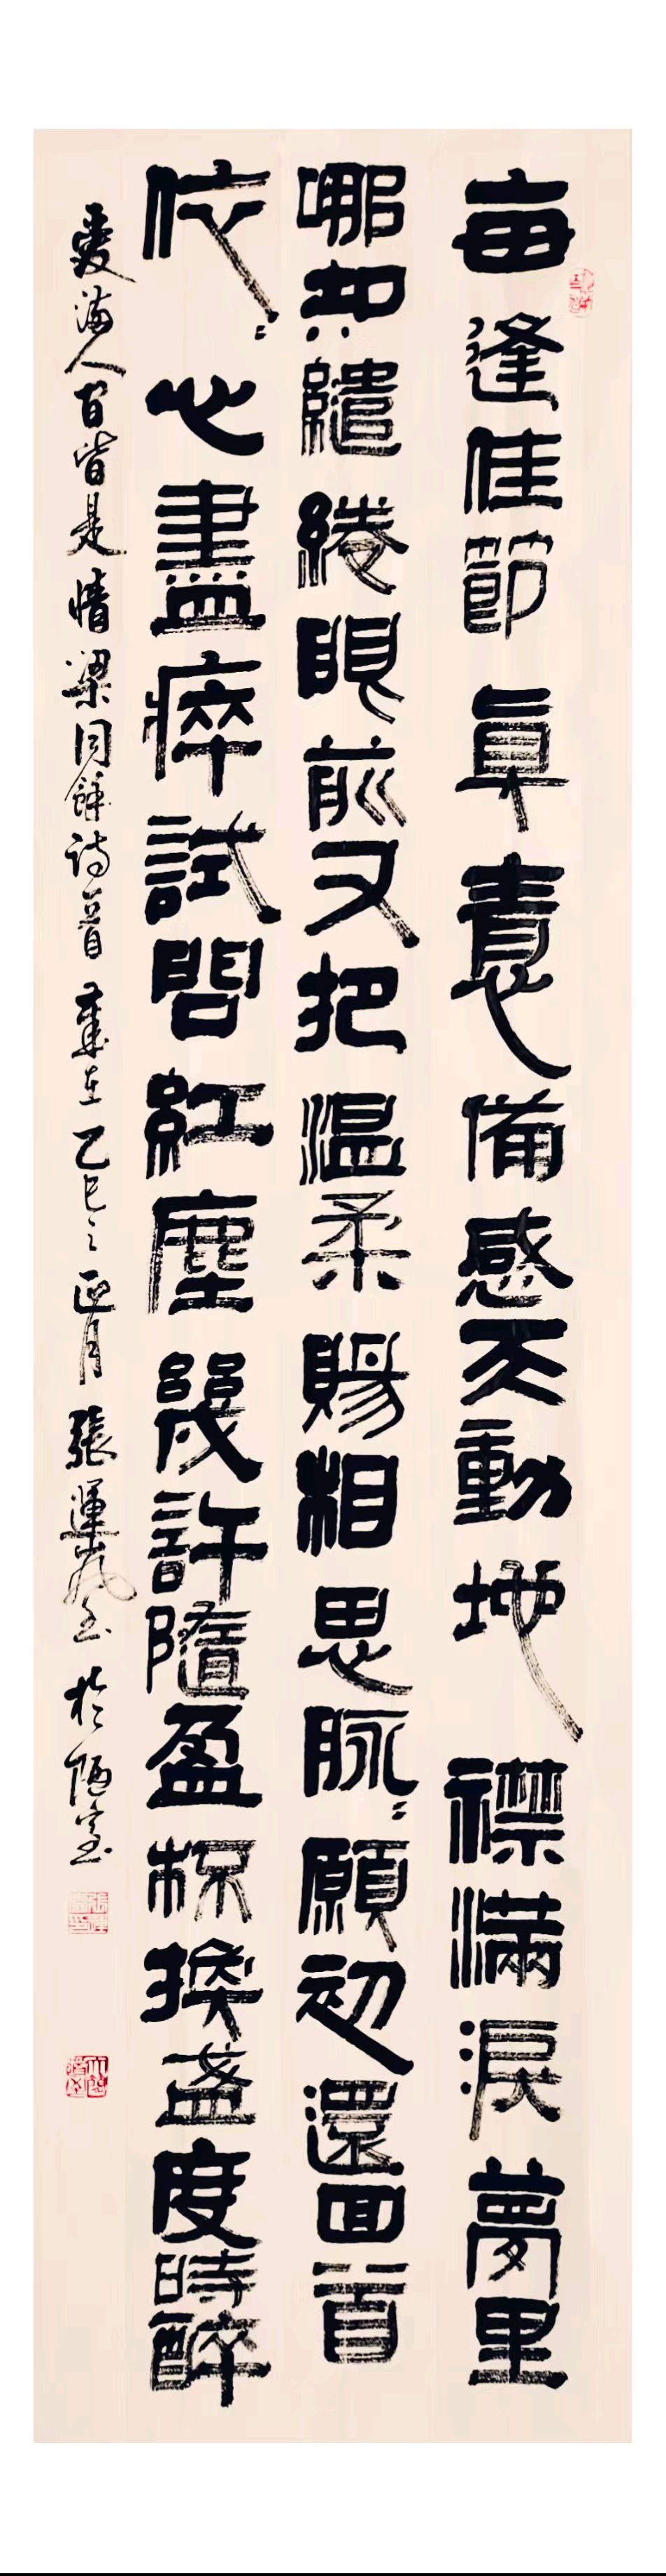 每逢佳節真意備感天動地襟滿淚夢里
哪知缱綣眼前又把温柔賜相思脉〻願初還回首
依〻心盡瘁試問紅塵幾許隨盈杯換盞度時醉
愛滿人間皆是情梁同餘詩首 歲在乙巳之正月張運 於陋室